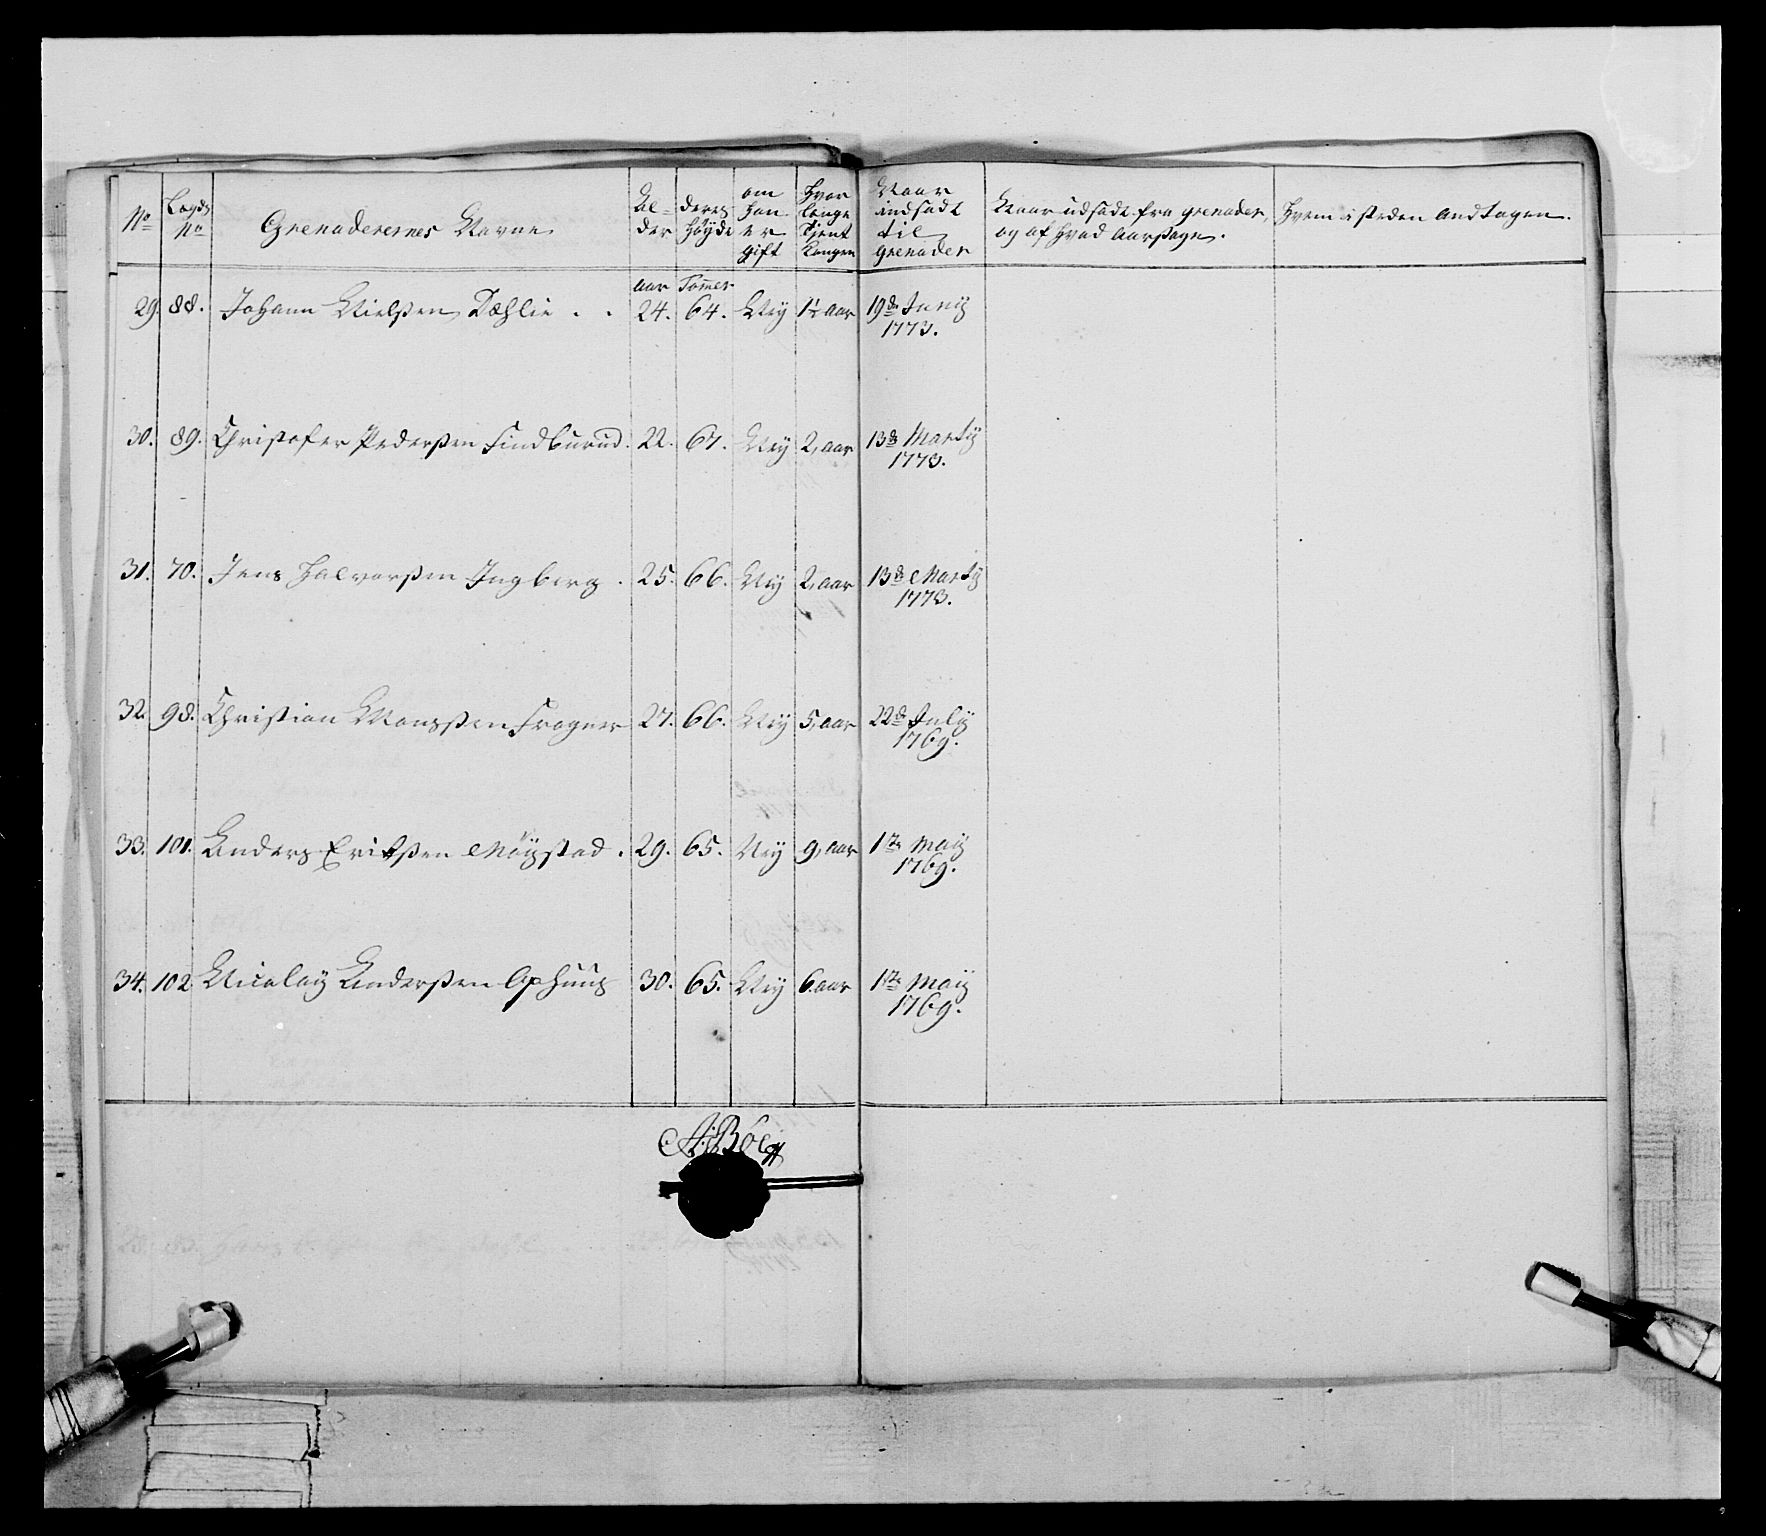 No
Lægds No
Grenaderernes Navne
Al-
der
deres
Høyde
om
han
er
gift
Hvor
længe
tient
Kongen
Naar
indsadt
til
grenader
Naar udsadt fra grenader,
og af hvad Aarsage.
Hvem i steden andtagen.
aar Tomer
29. 88. Johann Nielsen Dæhlie . . 24. 64. Ney 1½ aar 19de Juny
1773.
30. 89. Christofer Pedersen Findburud. 22. 67. Ney 2, aar 13de Marty
1773.
31. 70. Jens Halvorsen Ingberg . 25. 66. Ney 2, aar 13de Marty
1773.
32. 98. Christian Monssen Frogner 27. 66. Ney 5, aar 22de July
1769.
33. 101. Anders Eriksen Møystad . 29. 65. Ney 9, aar 1te May
1769.
34. 102 Nicolay Andersen Ophuus 30. 65. Ney 6. aar 1te May
1769.
A: Böe